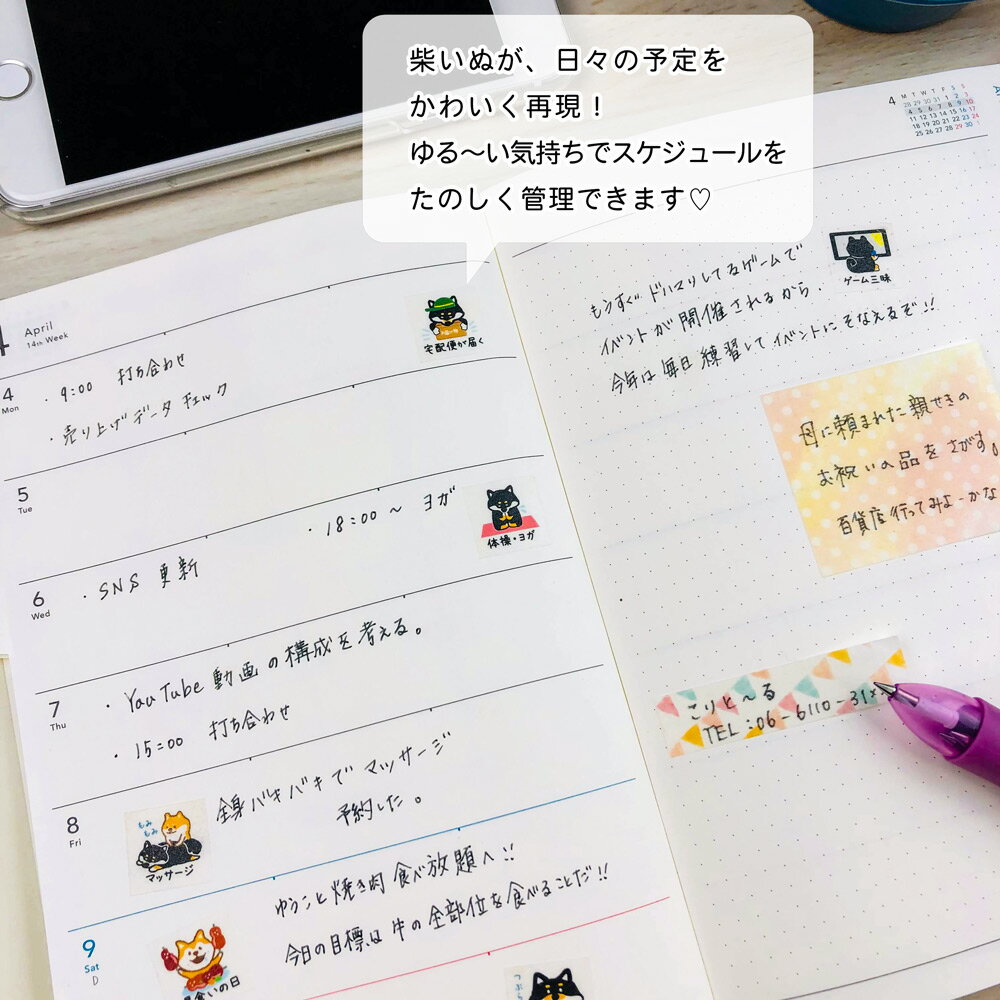 柴いぬが、日々の予定を
かわいく再現！
ゆる～い気持ちでスケジュールを
たのしく管理できます♡
4
M T W T F S S
28 29 30 31 1 2 3
4 5 6 7 8 9 10
11 12 13 14 15 16 17
18 19 20 21 22 23 24
25 26 27 28 29 30 1
April
14th Week
宅配便が届く
4
Mon
・9:00 打ち合わせ
・売り上げデータ チェック
5
Tue
・18:00～ ヨガ
体操・ヨガ
6
Wed
・SNS 更新
7
Thu
・YouTube 動画の構成を考える。
・15:00 打ち合わせ
8
Fri
もみ
もみ
マッサージ
全身バキバキで マッサージ
予約した。
9
Sat
ゆうこと焼き肉 食べ放題へ!!
今日の目標は 牛の全部位を食べることだ!!
食いの日
つぶら
もうすぐ ドハマリしてるゲームで
イベントが開催されるから、
今年は毎日練習してイベントにそなえるぞ!!
ゲーム三昧
母に頼まれた親せきの
お祝いの品を さがす。
百貨店行ってみよーかな
こりと～る
TEL:06-6110-31××